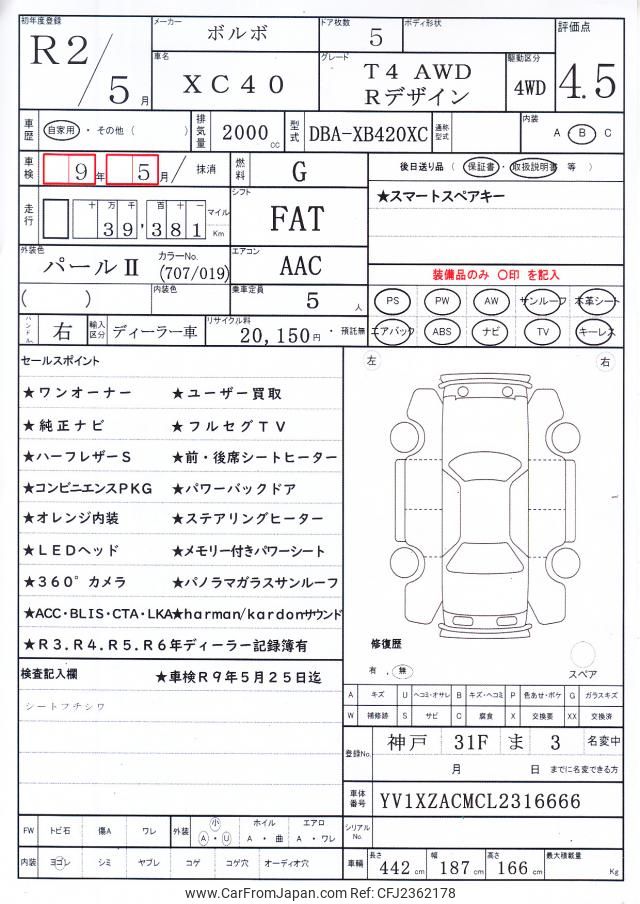 初年度登録 メーカー ドア枚数 ボディ形状 評価点
R2/5月 ボルボ 5 4.5
車名 グレード 駆動区分
XC40 T4 AWD Rデザイン 4WD
車歴 自家用・その他( ) 排気量 2000cc 型式 DBA-XB420XC 通称型式 内装 A B C
車検 9年 5月/ 抹消 燃料 G 後日送り品(保証書・取扱説明書 等)
★スマートスペアキー
走行 十 万 千 百 十 一 マイル Km シフト
39,381 FAT
外装色 カラーNo. エアコン
パールⅡ (707/019) AAC
装備品のみ 〇印 を記入
( ) 内装色 乗車定員 5人
PS PW AW サンルーフ 本革シート
ハンドル 右 輸入区分 ディーラー車 リサイクル料 20,150円 ・預託無
エアバック ABS ナビ TV キーレス
セールスポイント
左 右
★ワンオーナー ★ユーザー買取
★純正ナビ ★フルセグTV
★ハーフレザーS ★前・後席シートヒーター
★コンビニエンスPKG ★パワーバックドア
★オレンジ内装 ★ステアリングヒーター
★LEDヘッド ★メモリー付きパワーシート
★360°カメラ ★パノラマガラスサンルーフ
★ACC・BLIS・CTA・LKA★harman/kardonサウンド
★R3.R4.R5.R6年ディーラー記録簿有
修復歴
有 . 無 スペア
検査記入欄 ★車検R9年5月25日迄
シートフチシワ
A キズ U ヘコミ・オサレ B キズ・ヘコミ P 色あせ・ボケ G ガラスキズ
W 補修跡 S サビ C 腐食 X 交換要 XX 交換済
登録No. 神戸 31F ま 3 名変中
月 日 までに名変できる方
車体番号 YV1XZACMCL2316666
FW トビ石 傷A ワレ 外装 小 A・U ホイル A ・ 曲 エアロ A ・ ワレ
シリアルNo.
内装 ヨゴレ シミ ヤブレ コゲ コゲ穴 オーディオ穴
車輛 長さ 442cm 幅 187cm 高さ 166cm 最大積載量 Kg
www.CarFromJapan.com Ref: CFJ2362178